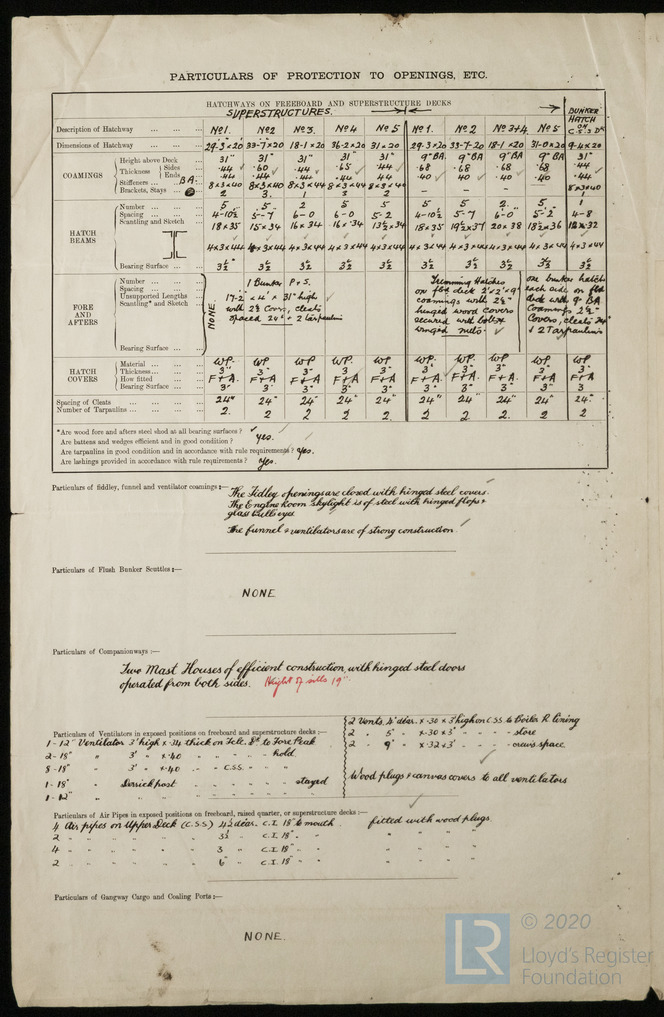 PARTICULARS OF PROTECTION TO OPENINGS, ETC.
HATCHWAYS ON FREEBOARD AND SUPERSTRUCTURE DECKS
SUPERSTRUCTURES.
BUNKER HATCH ON C.S.S DK
Description of Hatchway ... No1. No2 No3. No4 No5 No1. No2 No3+4 No5
Dimensions of Hatchway ... 29-3x20 33-7x20 18-1x20 36-2x20 31x20 29-3x20 33-7-20 18-1x20 31-0x20 9-4x20
COAMINGS
Height above Deck 31" 31" 31" 31" 31" 9"BA. 9"BA 9"BA 9"BA 31"
Thickness Sides .44 .60 .44 .65 .44 .68 .68 .68 .68 .44
Ends .44 .44 .44 .44 .44 .40 .40 .40 .40 .44
Stiffeners ... BA 8x3x40 8x3x40 8x3x44 8x3x44 8x3x40 – – – – 8x3x40
Brackets, Stays 2 3. 1 3 2 1
HATCH BEAMS
Number ... 5 5. 2 5 5 5 5 2. 5 1
Spacing ... 4-10½ 5-7 6-0 6-0 5-2 4-10½ 5-7 6-0 5-2 4-8
Scantling and Sketch 18x35 15x34 16x34 16x34 13½x34 18x35 19½x37 20x38 18½x36 12x32
4x3x44 4x3x44 4x3x44 4x3x44 4x3x44 4x3x44 4x3x44 4x3x44 4x3x44 4x3x44
Bearing Surface ... 3½ 3½ 3½ 3½ 3½ 3½ 3½ 3½ 3½ 3½
FORE AND AFTERS
Number ...
Spacing ...
Unsupported Lengths
Scantling* and Sketch ...
Bearing Surface ...
NONE.
1 Bunker P+S.
17-2 x 4' x 31" high
with 2½ Covs, cleats
spaced 24" + 2 tarpaulins
Trimming Hatches
on fbd deck 2'x2'x9"
coamings with 2½"
hinged wood covers
secured with bolts +
winged nuts.
one bunker hatch
each side on fbd
deck with 9" BA
Coamings 2½"
Covers, cleats 24"
+ 2 Tarpaulins
HATCH COVERS
Material ... WP. WP WP WP. WP. WP. WP WP. WP. WP
Thickness ... 3" 3" 3" 3" 3" 3" 3" 3" 3" 3"
How fitted F+A. F+A F+A F+A F+A F+A F+A. F+A F+A F+A.
Bearing Surface ... 3" 3" 3" 3" 3" 3" 3" 3" 3" 3
Spacing of Cleats ... 24" 24" 24" 24" 24" 24" 24" 24" 24" 24"
Number of Tarpaulins ... 2. 2 2 2 2 2 2 2. 2 2
*Are wood fore and afters steel shod at all bearing surfaces?
Are battens and wedges efficient and in good condition? yes.
Are tarpaulins in good condition and in accordance with rule requirements? yes.
Are lashings provided in accordance with rule requirements? yes.
Particulars of fiddley, funnel and ventilator coamings:—
The Fidley openings are closed with hinged steel covers.
The Engine Room skylight is of steel with hinged flaps +
glass bulls eyes
The funnel + ventilators are of strong construction.
Particulars of Flush Bunker Scuttles:—
NONE
Particulars of Companionways:—
Two Mast Houses of efficient construction, with hinged steel doors
operated from both sides. Height of sills 19".
Particulars of Ventilators in exposed positions on freeboard and superstructure decks:—
1-12" Ventilator 3' high x .34 thick on Fcle. Dk to Fore Peak
2-18" " 3' x .40 " " " hold.
8-18" " 3' x .40 " " C.S.S. " " "
1-18" " Derrick post " " " " stayed
1-12" " " " " " " "
2 Vents. diar. x .30 x 3' high on C.S.S. to Boiler R. lining
2 " 5" " x .30 x 3' " " " store
2 " 9" " x .32 x 3' " " " crew's space
Wood plugs + canvas covers to all ventilators
Particulars of Air Pipes in exposed positions on freeboard, raised quarter, or superstructure decks:—
4 Air pipes on Upper Deck (C.S.S) 4½ diar. C.I. 18" to mouth fitted with wood plugs.
2 " " " " " " 3½ " C.I. 18" " " " " " "
4 " " " " " " 3 " C.I. 18" " " " " " "
2 " " " " " " 6" " C.I. 18" " " " " " "
Particulars of Gangway Cargo and Coaling Ports:—
NONE.
© 2020
LR
Lloyd's Register
Foundation